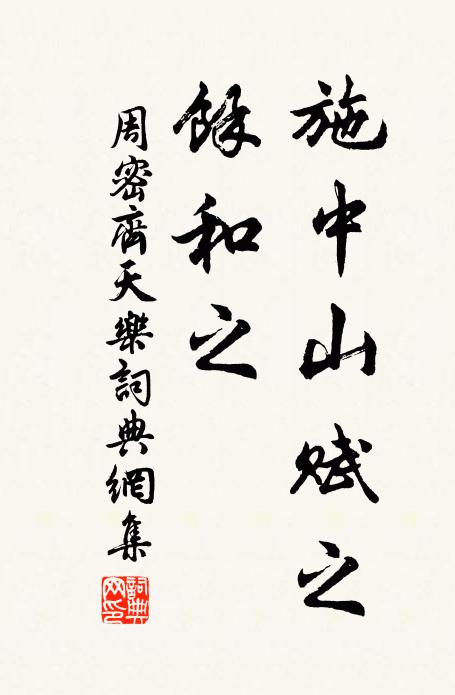 施中山賦之
餘和之
周密齊天樂詞典網集
詞典網印